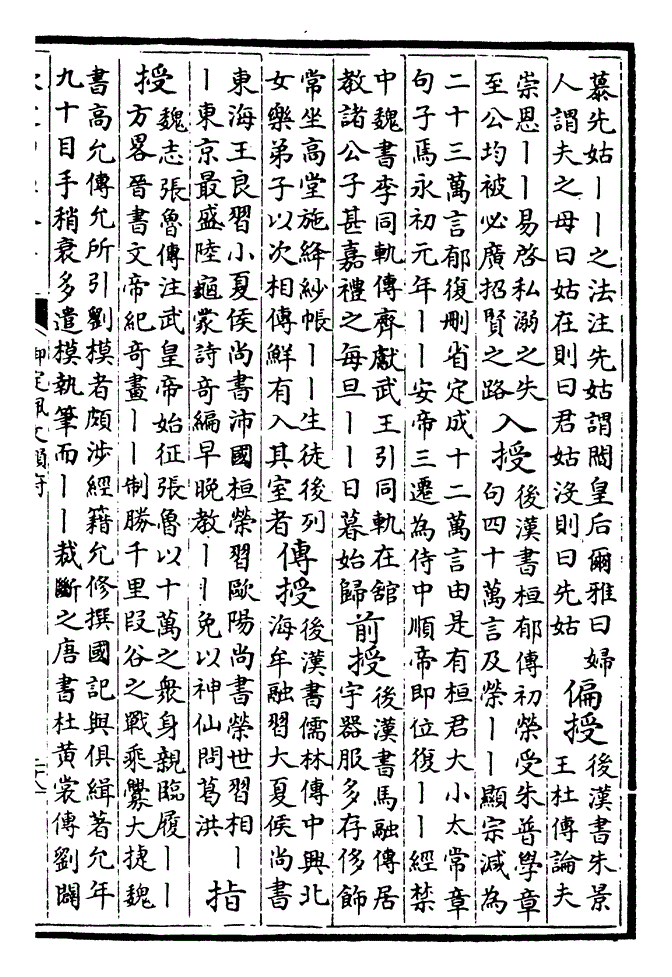 慕先姑丨丨之法注先姑謂閻皇后爾雅曰婦
人謂夫之母曰姑在則曰君姑沒則曰先姑
偏授
後漢書朱景
王杜傳論夫
崇恩丨丨易啓私溺之失
至公均被必廣招賢之路
入授
後漢書桓郁傳初榮受朱普學章
句四十萬言及榮丨丨顯宗減為
二十三萬言郁復刪省定成十二萬言由是有桓君大小太常章
句子焉永初元年丨丨安帝三遷為侍中順帝即位復丨丨經禁
中魏書李同軌傳齊獻武王引同軌在舘
教諸公子甚嘉禮之每旦丨丨日暮始歸
前授
後漢書馬融傳居
宇器服多存侈飾
常坐高堂施絳紗帳丨丨生徒後列
女樂弟子以次相傳鮮有入其室者
傳授
後漢書儒林傳中興北
海牟融習大夏侯尚書
東海王良習小夏侯尚書沛國桓榮習歐陽尚書榮世習相丨
丨東京最盛陸龜蒙詩奇編早晚教丨丨免以神仙問葛洪
指
授
魏志張魯傳注武皇帝始征張魯以十萬之衆身親臨履丨丨
方畧晉書文帝紀奇畫丨丨制勝千里段谷之戰乘釁大捷魏
書高允傳允所引劉模者頗涉經籍允修撰國記與俱緝著允年
九十目手稍衰多遣模執筆而丨丨裁斷之唐書杜黃裳傳劉闢
御定佩文韻府